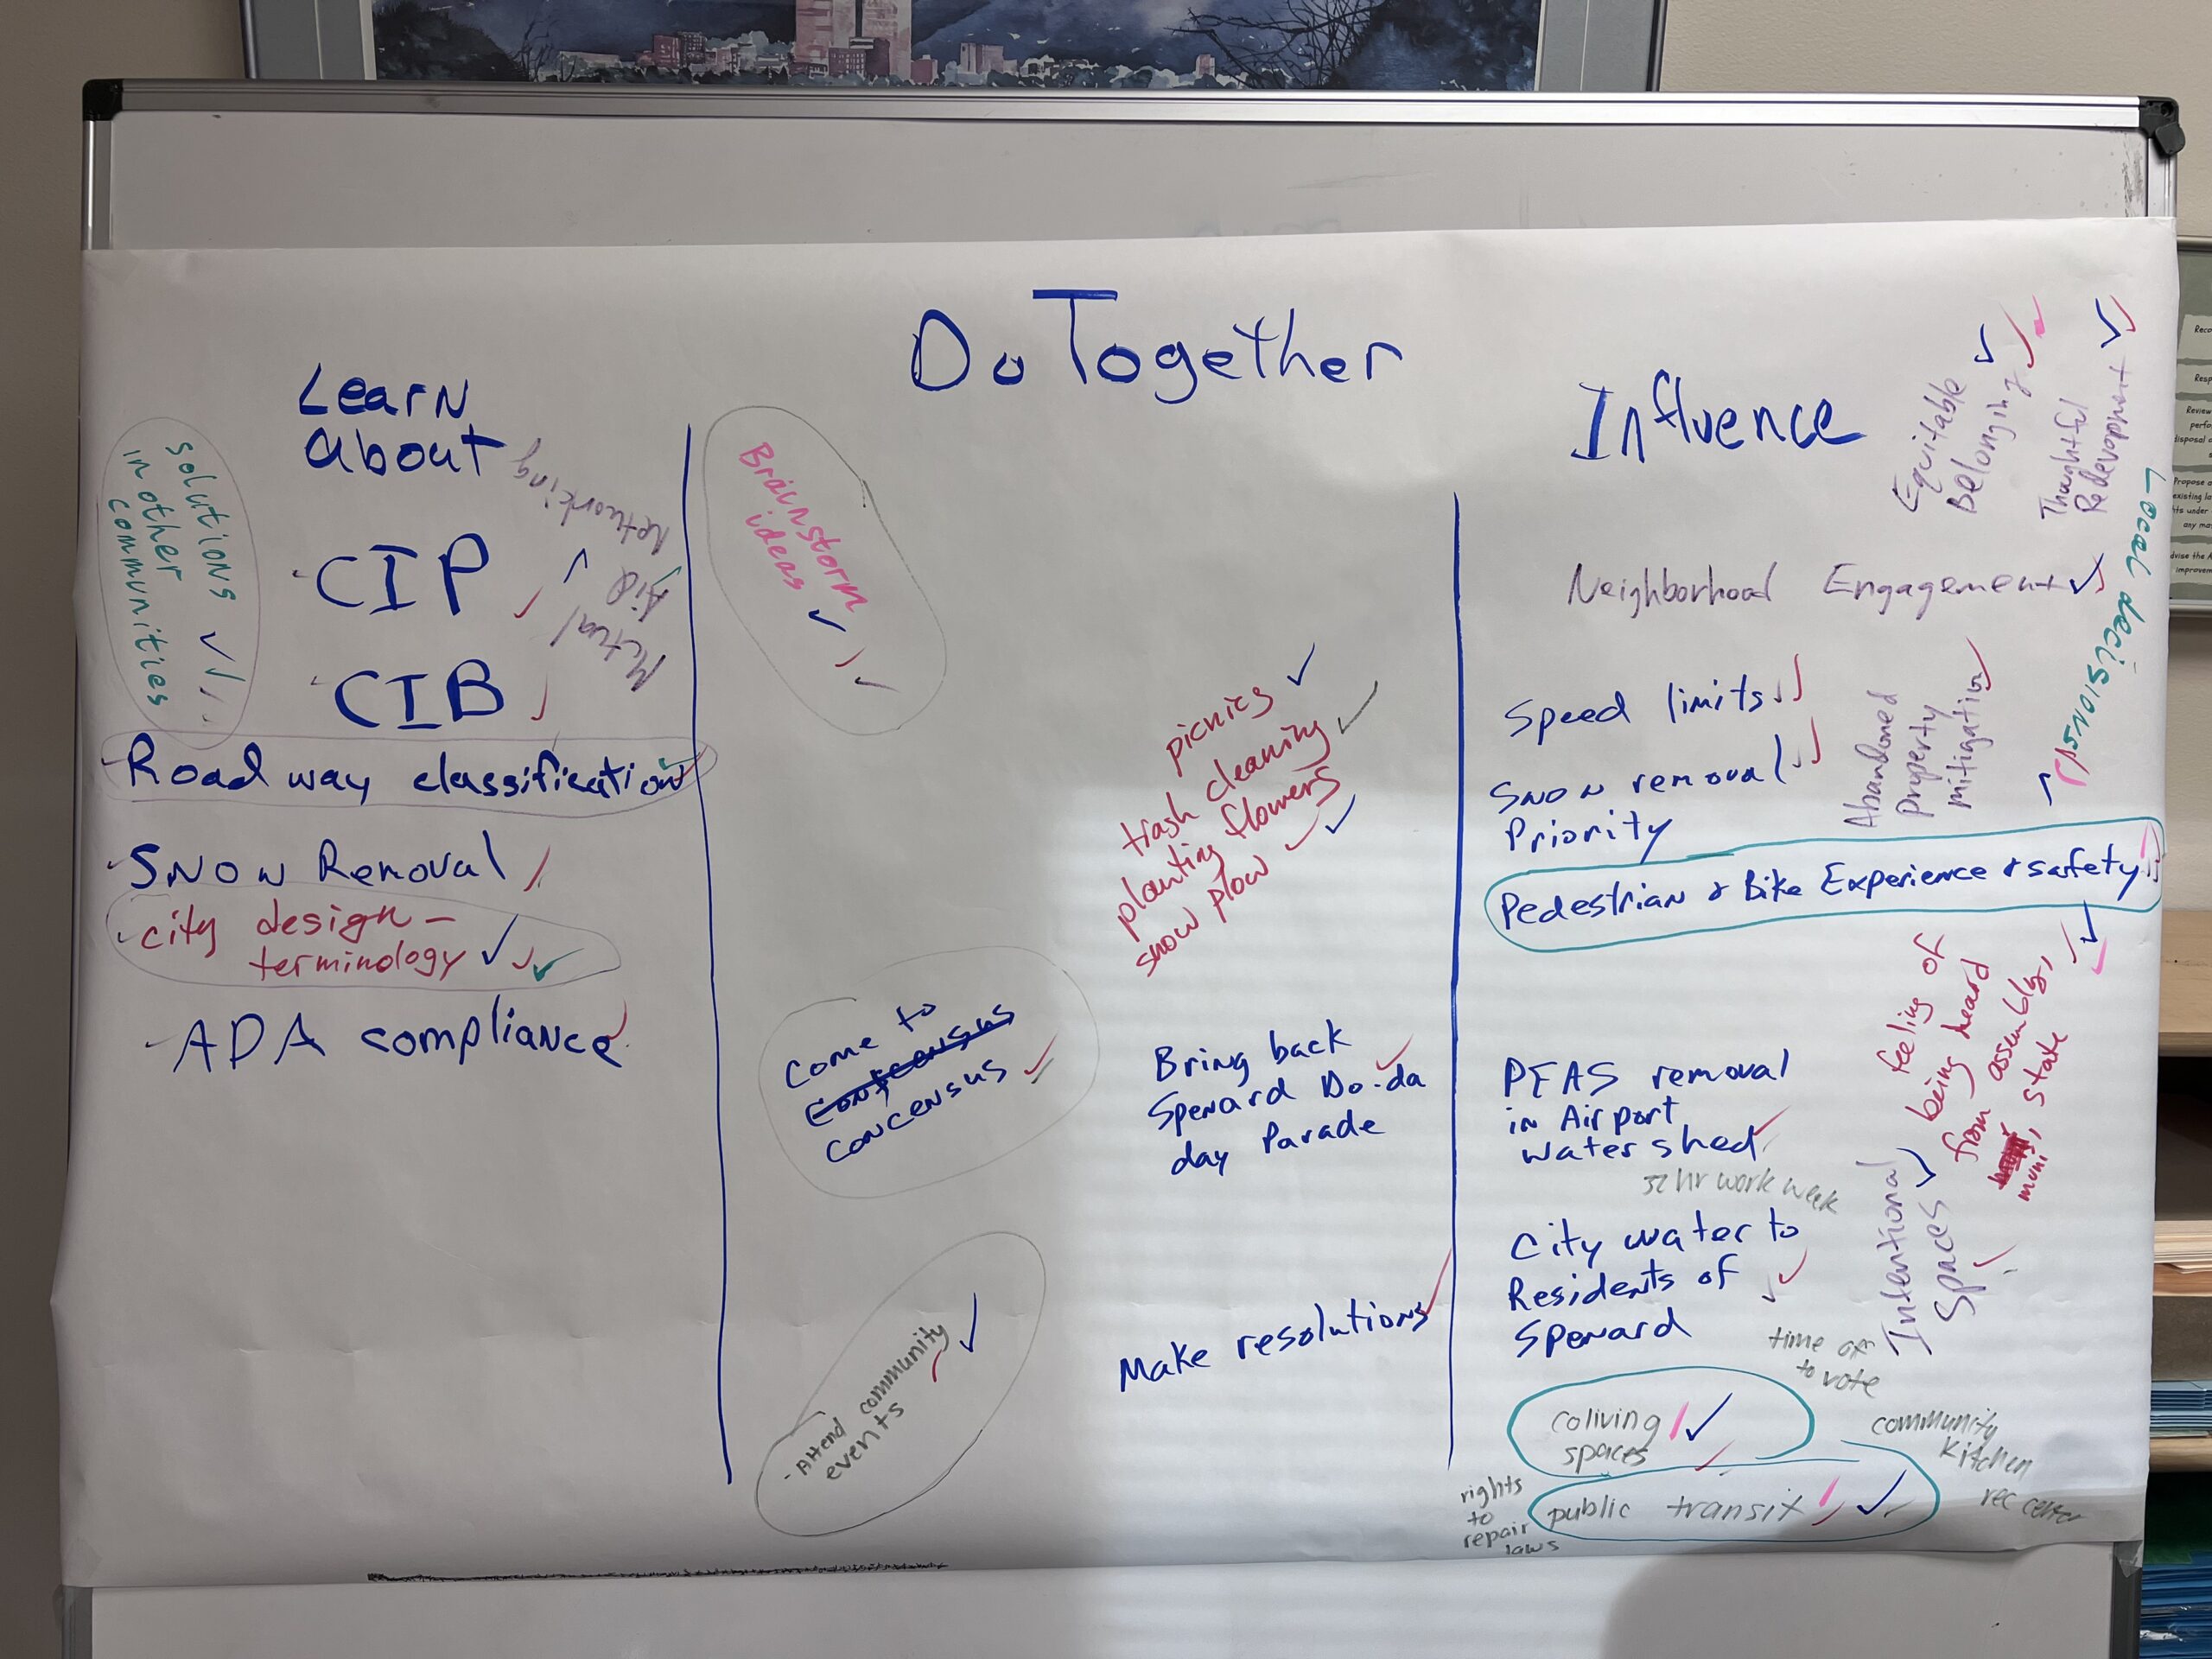 Do Together
Learn
about
Networking
Mutual
Aid
solutions
in other
communities
CIP
CIB
Road way classification
Snow Removal
city design -
terminology
ADA compliance
Brainstorm
ideas
picnics
trash cleaning
planting flowers
snow plow
Come to
concensus
Bring back
Spenard Do-da
day Parade
- Attend community
events
Make resolutions
Influence
Equitable
Belonging
Thoughtful
Redevopment
Local decisions
Neighborhood Engagement
Speed limits
Snow removal
Priority
Abandoned
Property
mitigation
Pedestrian & Bike Experience & safety
feeling of
being heard
from assembly,
muni, state
PFAS removal
in Airport
water shed
32 hr work week
Intentional
Spaces
City water to
Residents of
Spenard
time off
to vote
coliving
spaces
community
kitchen
rec center
rights
to
repair
laws
public transit